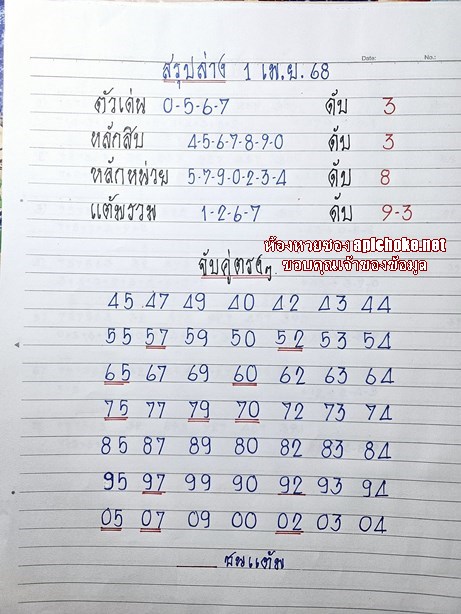 Date: No.:
สรุปล่าง 1 เม.ย. 68
ตัวเด่น 0-5-6-7 ดับ 3
หลักสิบ 4-5-6-7-8-9-0 ดับ 3
หลักหน่วย 5-7-9-0-2-3-4 ดับ 8
แต้มรวม 1-2-6-7 ดับ 9-3
ห้องหวยของ apichoke.net
ขอบคุณเจ้าของข้อมูล
จับคู่ตรงๆ
45 47 49 40 42 43 44
55 57 59 50 52 53 54
65 67 69 60 62 63 64
75 77 79 70 72 73 74
85 87 89 80 82 83 84
95 97 99 90 92 93 94
05 07 09 00 02 03 04
ชนแต้ม